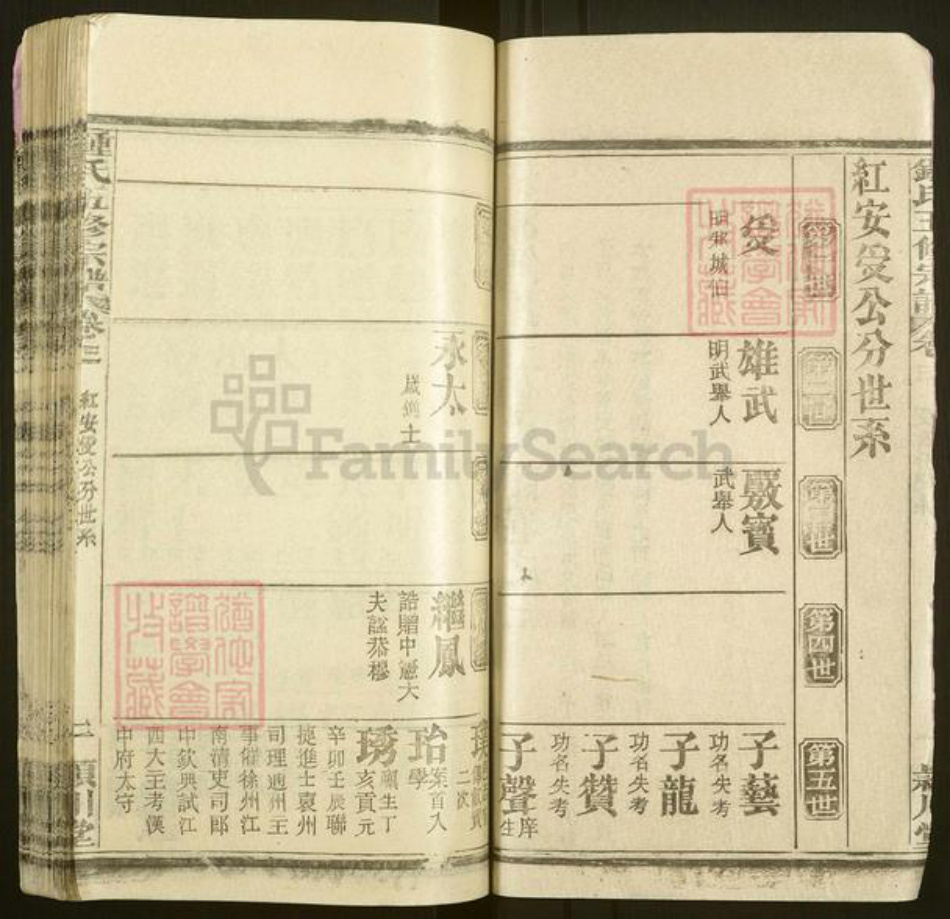 紅安受公分世系
第一世
第二世
第三世
第四世
第五世
受
城伯
雄武
明武舉人
武舉人
子藝
功名失考
子龍
功名失考
子贊
功名失考
子聲
庠生
永太
歲進士
繼鳳
誥贈中憲大
夫諡恭穆
珆
案首入
學
琇
生丁
亥貢元
辛卯壬辰聯
捷進士袁州
司理
徐州江
南清吏司郎
中欽典試江
西大主考漢
中府太守
鍾氏五修宗譜卷三
紅安受公分世系
二
潁川堂
FamilySearch